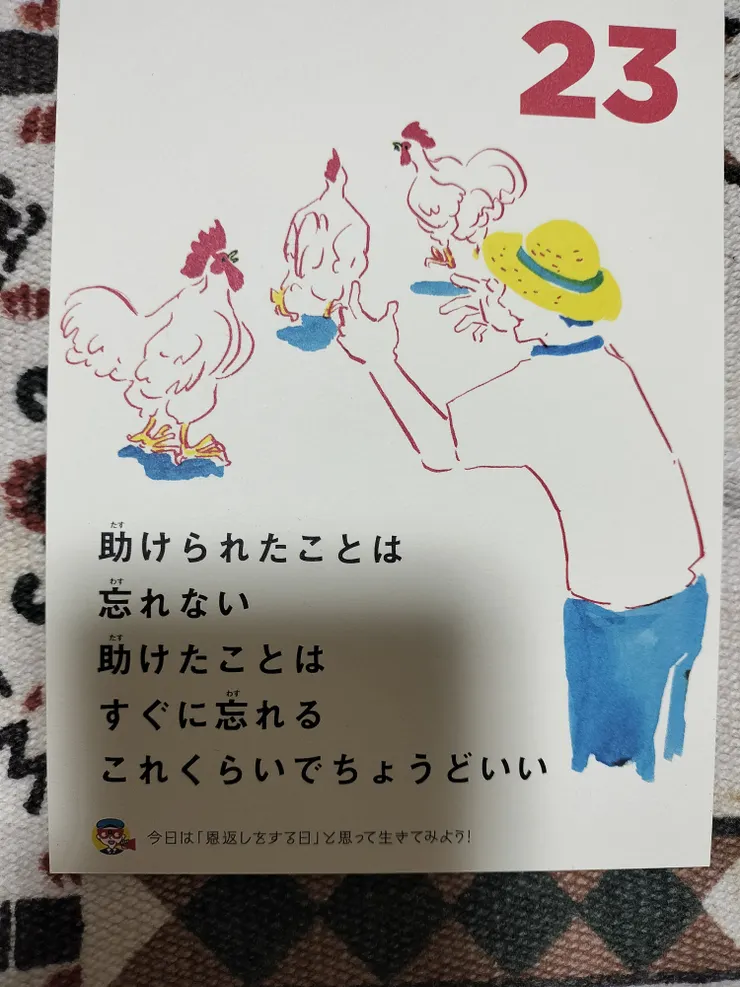 23
助けられたことは
忘れない
助けたことは
すぐに忘れる
これくらいでちょうどいい
今日は「恩返しをする日」と思って生きてみよう!